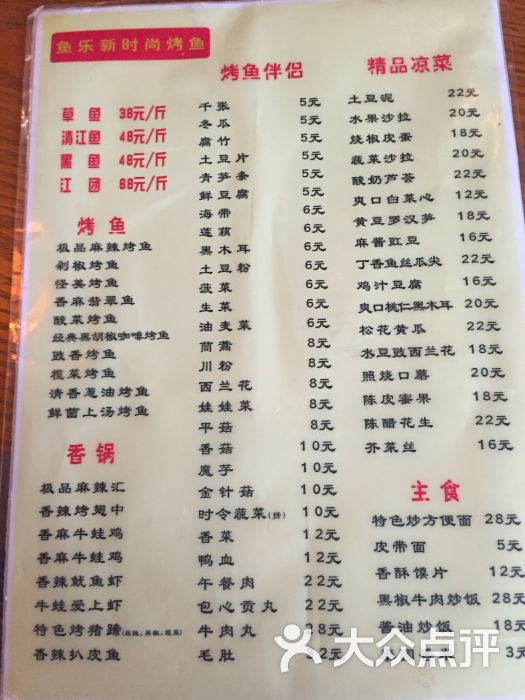 鱼乐新时尚烤鱼
草鱼 38元/斤
清江鱼 48元/斤
黑鱼 48元/斤
江团 68元/斤
烤鱼
极品麻辣烤鱼
剁椒烤鱼
怪美烤鱼
香麻翡翠鱼
酸菜烤鱼
经典黑胡椒咖啡烤鱼
豉香烤鱼
榄菜烤鱼
清香葱油烤鱼
鲜菌上汤烤鱼
香锅
极品麻辣汇
香辣烤翅中
香麻牛蛙鸡
香麻牛蛙鸡
香辣鱿鱼虾
牛蛙爱上虾
特色烤猪蹄
香辣扒皮鱼
烤鱼伴侣
千张 5元
冬瓜 5元
腐竹 5元
土豆片 5元
青笋条 5元
鲜豆腐 5元
海带 6元
莲藕 6元
黑木耳 6元
土豆粉 6元
菠菜 6元
生菜 6元
油麦菜 6元
茼蒿 8元
川粉 8元
西兰花 8元
娃娃菜 8元
平菇 8元
香菇 10元
魔芋 10元
金针菇 10元
时令蔬菜(拼) 10元
香菜 12元
鸭血 12元
午餐肉 22元
包心贡丸 22元
牛肉丸 28元
毛肚 32元
精品凉菜
土豆泥 22元
水果沙拉 20元
烧椒皮蛋 18元
蔬菜沙拉 20元
酸奶芦荟 22元
爽口白菜心 12元
黄豆罗汉笋 18元
麻酱豇豆 16元
丁香鱼丝瓜尖 22元
鸡汁豆腐 16元
爽口桃仁黑木耳 20元
松花黄瓜 22元
水豆豉西兰花 18元
照烧口蘑 20元
陈皮蜜果 18元
陈醋花生 22元
芥菜丝 16元
主食
特色炒方便面 28元
皮带面 5元
香酥馍片 12元
黑椒牛肉炒饭 28元
酱油炒饭 18元
3元
大众点评